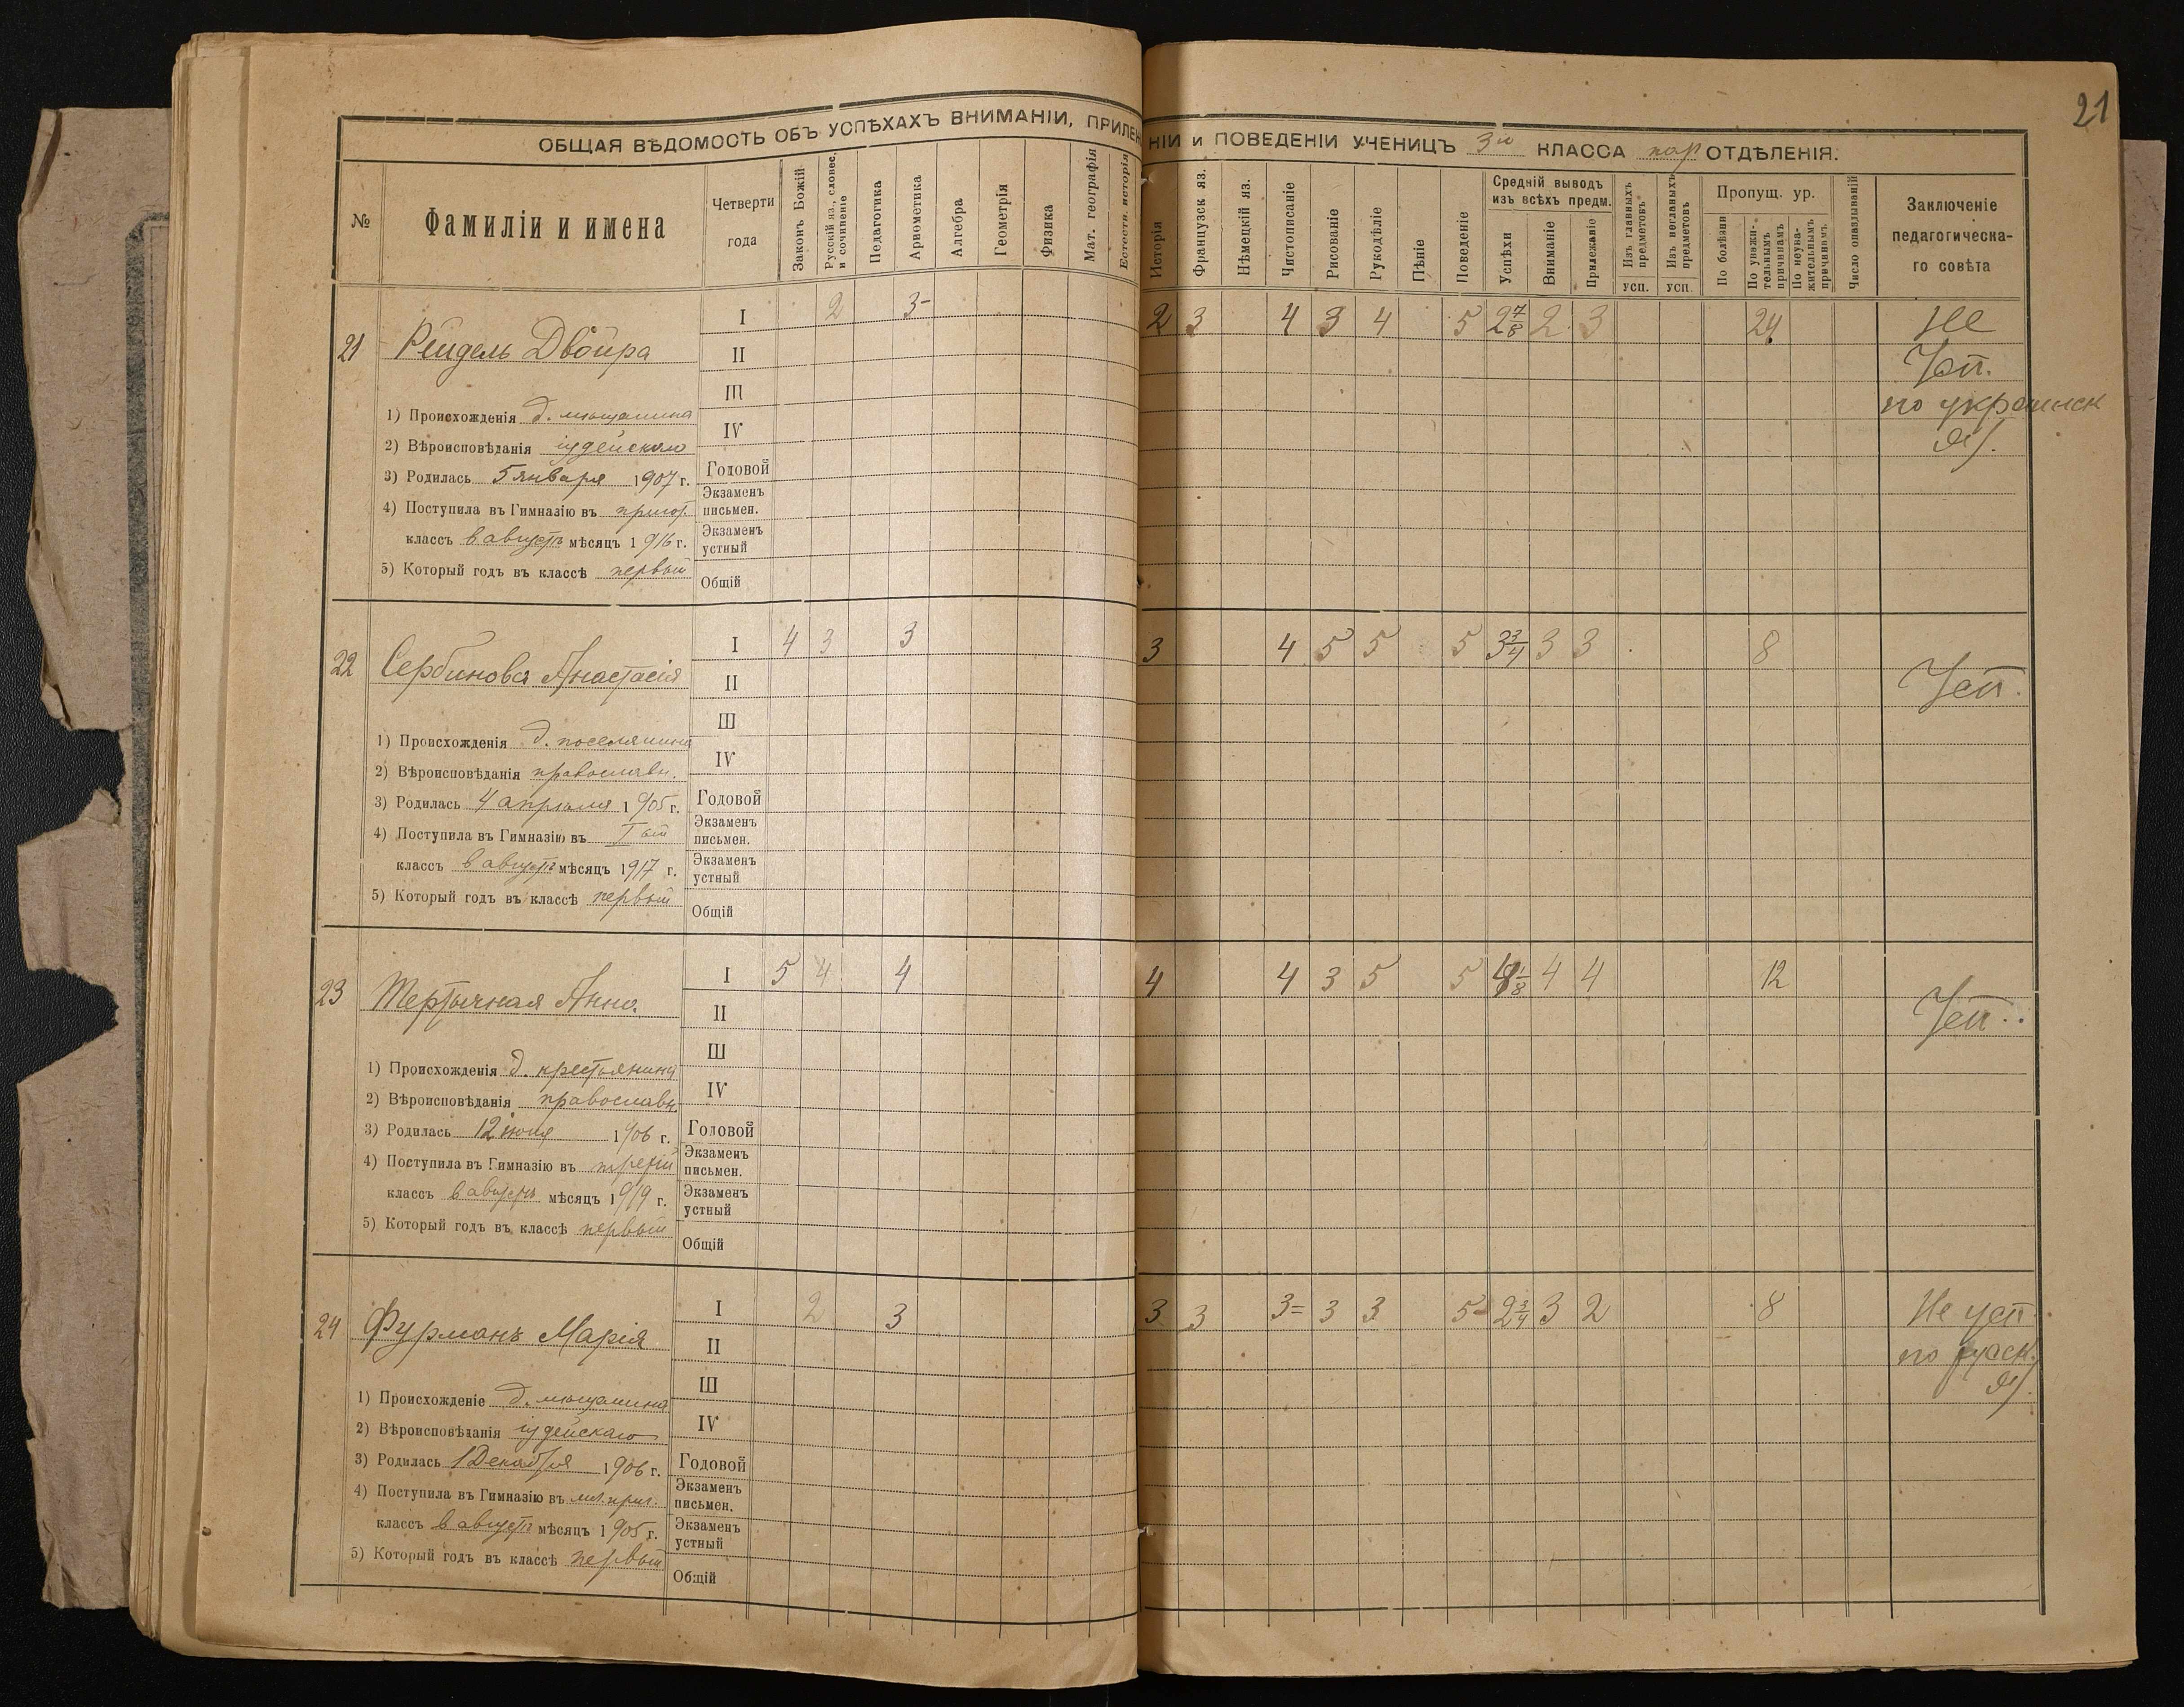 21
ОБЩАЯ ВѢДОМОСТЬ ОБЪ УСПѢХАХЪ ВНИМАНІИ, ПРИЛЕЖ
НІИ и ПОВЕДЕНІИ УЧЕНИЦЪ 3го КЛАССА пар ОТДѢЛЕНІЯ.
№
Фамиліи и имена
Четверти года
Законъ Божій
Русскій яз., словес, и сочиненіе
Педагогика
Ариөметика
Алгебра
Геометрія
Физика
Мат. географія
Естеств. исторія
Исторія
Французск яз.
Нѣмецкій яз.
Чистописаніе
Рисованіе
Рукодѣліе
Пѣніе
Поведеніе
Средній выводъ изъ всѣхъ предм.
Успѣхи
Вниманіе
Прилежаніе
Изъ главныхъ предметовъ
усп.
Изъ неглавныхъ предметовъ
усп.
Пропущ. ур.
По болѣзни
По уважительнымъ причинамъ
По неуважительнымъ причинамъ
Число опаздываній
Заключеніе педагогическаго совѣта
21 Рейдель Двойра
I 2 3- 2 3 4 3 4 5 2 7/8 2 3 24 Не
II Усп.
III по украинск
IV яз.
1) Происхожденія д. мѣщанина
2) Вѣроисповѣданія іудейскаго
3) Родилась 5 января 1907 г.
4) Поступила въ Гимназію въ пригот.
классъ в августѣ мѣсяцъ 1916 г.
5) Который годъ въ классѣ первый
Годовой
Экзаменъ письмен.
Экзаменъ устный
Общій
22 Сербинова Анастасія
I 4 3 3 3 4 5 5 5 3 3/4 3 3 8
II Усп.
III
IV
1) Происхожденія д. поселянина
2) Вѣроисповѣданія православн.
3) Родилась 4 апрѣля 1905 г.
4) Поступила въ Гимназію въ I ый
классъ в августѣ мѣсяцъ 1917 г.
5) Который годъ въ классѣ первый
Годовой
Экзаменъ письмен.
Экзаменъ устный
Общій
23 Тертычная Анна.
I 5 4 4 4 4 3 5 5 4 1/8 4 4 12
II Усп.
III
IV
1) Происхожденія д. крестьянина
2) Вѣроисповѣданія православн.
3) Родилась 12 іюня 1906 г.
4) Поступила въ Гимназію въ третій
классъ в августѣ мѣсяцъ 1919 г.
5) Который годъ въ классѣ первый
Годовой
Экзаменъ письмен.
Экзаменъ устный
Общій
24 Фурманъ Марія
I 2 3 3 3 3= 3 3 5- 2 3/4 3 2 8 Не усп.
II по русск.
III яз.
IV
1) Происхожденіе д. мѣщанина
2) Вѣроисповѣданія іудейскаго
3) Родилась 1 Декабря 1906 г.
4) Поступила въ Гимназію въ мл. приг.
классъ в августѣ мѣсяцъ 1905 г.
5) Который годъ въ классѣ первый
Годовой
Экзаменъ письмен.
Экзаменъ устный
Общій